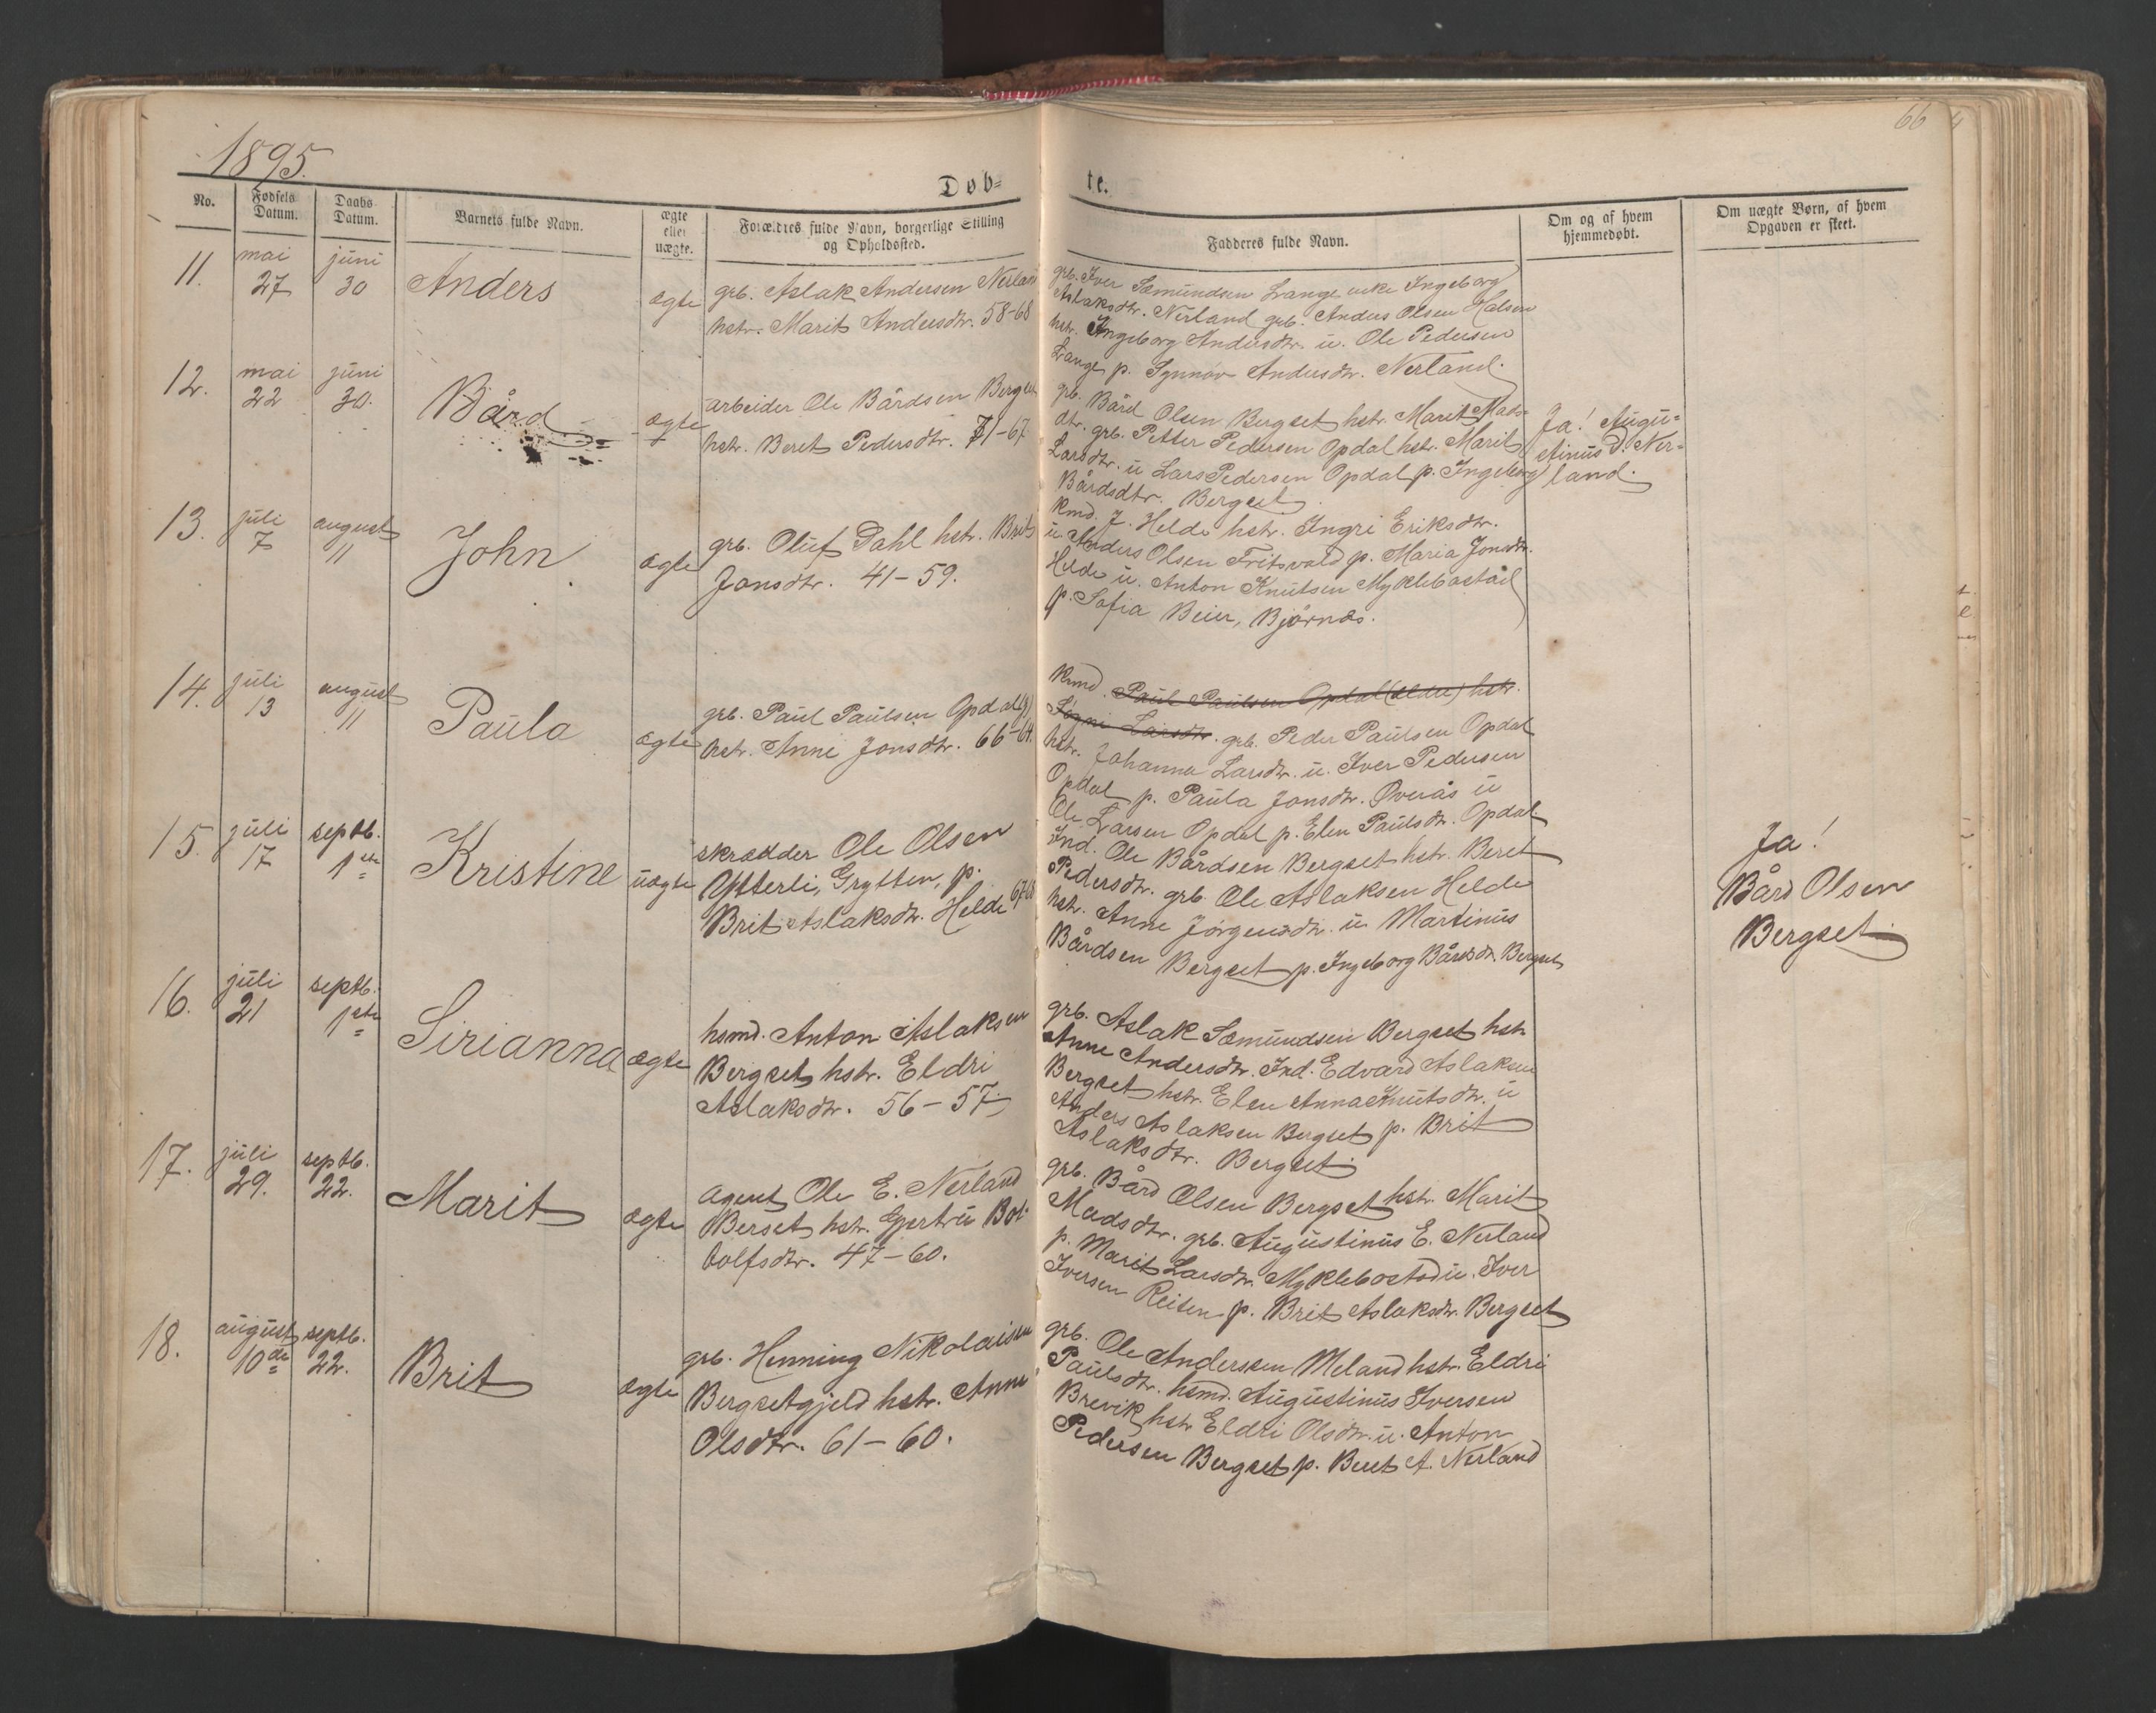 66
1895.
Døb-
te.
No.
Fødsels Datum.
Daabs Datum.
Barnets fulde Navn.
ægte eller uægte.
Forældres fulde Navn, borgerlige Stilling og Opholdssted.
Fadderes fulde Navn.
Om og af hvem hjemmedøbt.
Om uægte Børn, af hvem Opgaven er skeet.
11.
mai 27
juni 30
Anders
ægte
grb. Aslak Andersen Nerland
hstr. Marit Andersdtr. 58-68
grb. Iver Sæmundsen Lange enke Ingeborg
Aslaksdtr. Nerland grb. Anders Olsen Halsen
hstr. Ingeborg Andersdtr. u. Ole Pedersen
Lange p. Synnøv Andersdtr. Nerland.
12.
mai 22
juni 30.
Bård
ægte
arbeider Ole Bårdsen Bergset
hstr. Beret Pedersdtr. 71-67
grb. Bård Olsen Bergset hstr. Marit Mads-
dtr. grb. Petter Pedersen Opdal hstr. Marit
Larsdtr. u Lars Pedersen Opdal p. Ingeborg
Bårdsdtr. Bergset
Ja! Augu-
stinus d. Ner-
land.
13.
juli 7
august 11
John
ægte
grb. Oluf Dahl hstr. Brit
Jonsdtr. 41-59.
kmd. J. Helde hstr. Ingri Eriksdtr.
u Anders Olsen Fritsvold p. Maria Jonsdtr.
Helde u. Anton Knutsen Myklebostad
p. Sofia Beier, Bjørnås.
14.
juli 13
august 11
Paula
ægte
grb. Paul Paulsen Opdal (y)
hstr. Anne Jonsdtr. 66-64.
kmd. Paul Paulsen Opdal (eldre) hstr.
Signi Larsdtr. grb. Peder Paulsen Opdal
hstr. Johanna Larsdtr. u. Iver Pedersen
Opdal p. Paula Jonsdtr. Øverås u
Ole Larsen Opdal p. Elen Paulsdtr. Opdal
15.
juli 17
septb. 1ste
Kristine
uægte
skrædder Ole Olsen
Ytterli, Grytten, p.
Brit Aslaksdtr. Helde 67-68
Ind. Ole Bårdsen Bergset hstr. Beret
Pedersdtr. grb. Ole Aslaksen Helde
hstr. Anne Jørgensdtr. u Martinus
Bårdsen Bergset p. Ingeborg Bårdsdtr. Bergset
Ja!
Bård Olsen
Bergset
16.
juli 21
septb. 1ste
Sirianna
ægte
hsmd. Anton Aslaksen
Bergset hstr. Eldri
Aslaksdtr. 56-57.
grb. Aslak Sæmundsen Bergset hstr
Anne Andersdtr. Ind. Edvard Aslaksen
Bergset hstr. Elen Anna Knutsdtr. u
Anders Aslaksen Bergset p. Brit
Aslaksdtr. Bergset
17.
juli 29.
septb. 22.
Marit
ægte
Agent Ole E. Nerland
Berset hstr. Gjertru Bot-
tolfsdtr. 47-60.
grb. Bård Olsen Bergset hstr. Marit
Madsdtr. grb. Augustinus E. Nerland
p. Marit Larsdtr. Myklebostad u. Iver
Iversen Reiten p. Brit Aslaksdtr. Bergset
18.
august 10de
septb. 22.
Brit
ægte
grb. Henning Nikolaisen
Bergsetgjeld hstr. Anne
Olsdtr. 61-60.
grb. Ole Anderssen Meland hstr. Eldri
Paulsdtr. hsmd. Augustinus Iversen
Brevik hstr Eldri Olsdtr. u. Anton
Pedersen Bergset p. Beret A. Nerland